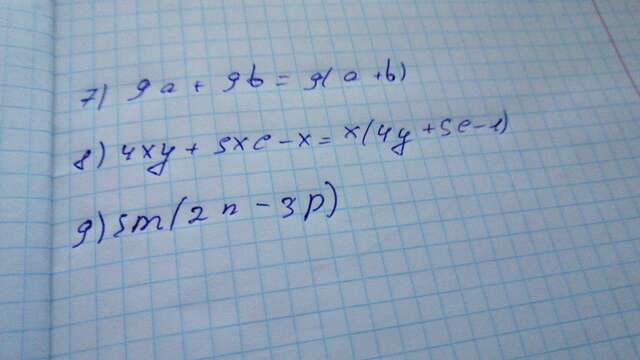 7) 9a + 9b = 9(a + b)
8) 4xy + 5xc - x = x(4y + 5c - 1)
9) 5m(2n - 3p)